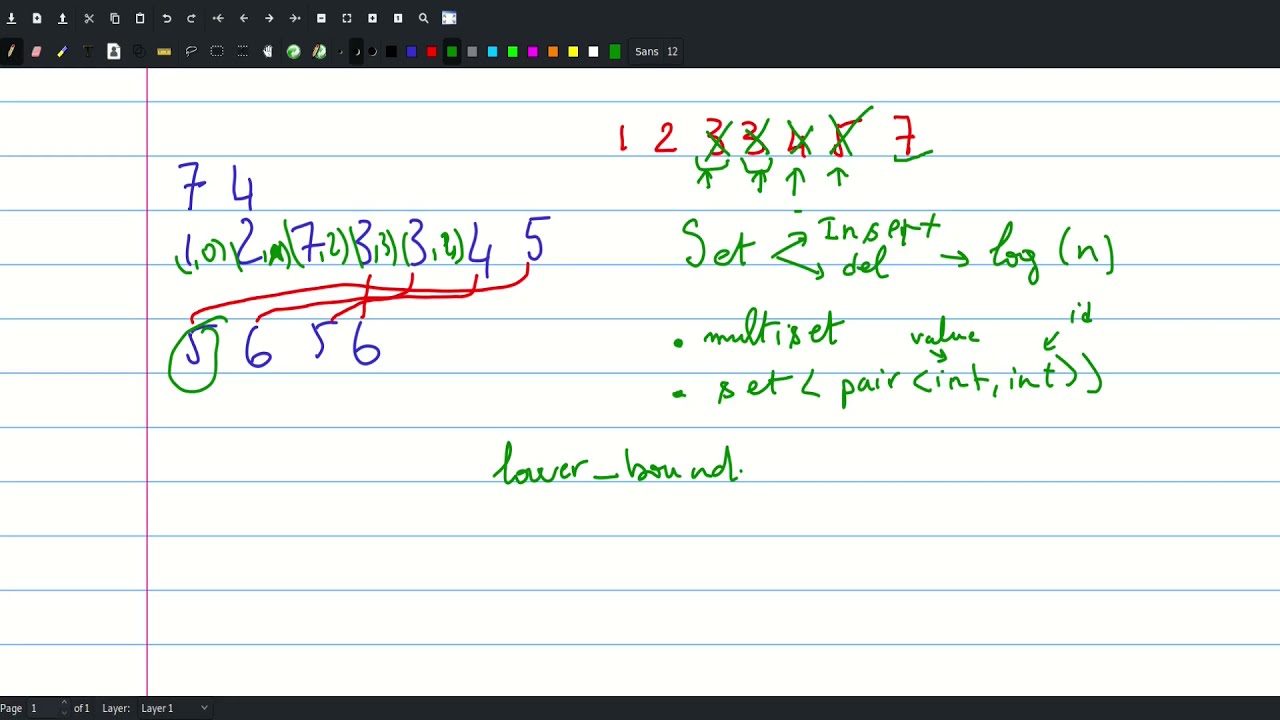 Sans 12
1 2 3 3 4 5 7
7 4
(1,0) (2,1) (7,2) (3,3) (3,4) 4 5
Set Insert del → log (n)
5 6 5 6
• multiset
value id
• set < pair <int, int>>
lower_bound.
Page 1 of 1 Layer: Layer 1